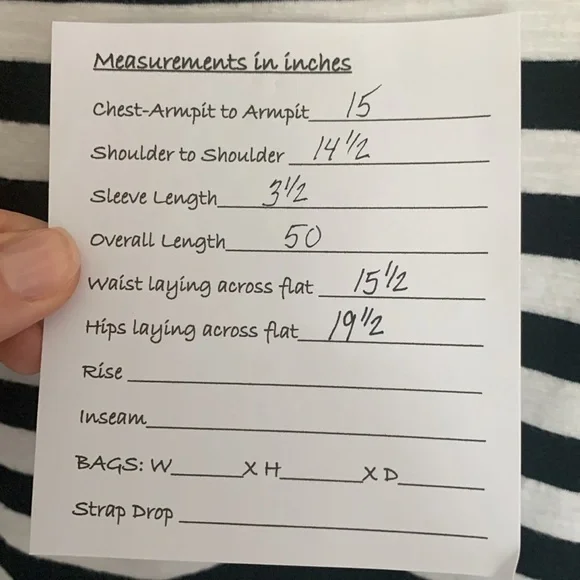 Measurements in inches
Chest-Armpit to Armpit 15
Shoulder to Shoulder 14 1/2
Sleeve Length 3 1/2
Overall Length 50
Waist laying across flat 15 1/2
Hips laying across flat 19 1/2
Rise
Inseam
BAGS: W______X H______X D______
Strap Drop